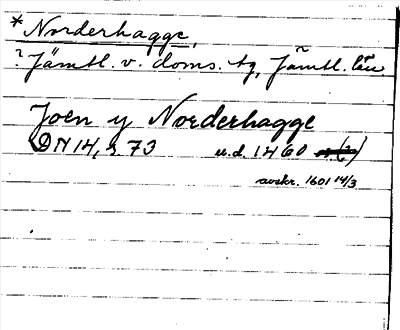 * Norderhagge,
? Jämtl. v. doms. tg, Jämtl. län
Joen y Norderhagge
DN 14, s. 73 u.d. 1460
avskr. 1601 14/3